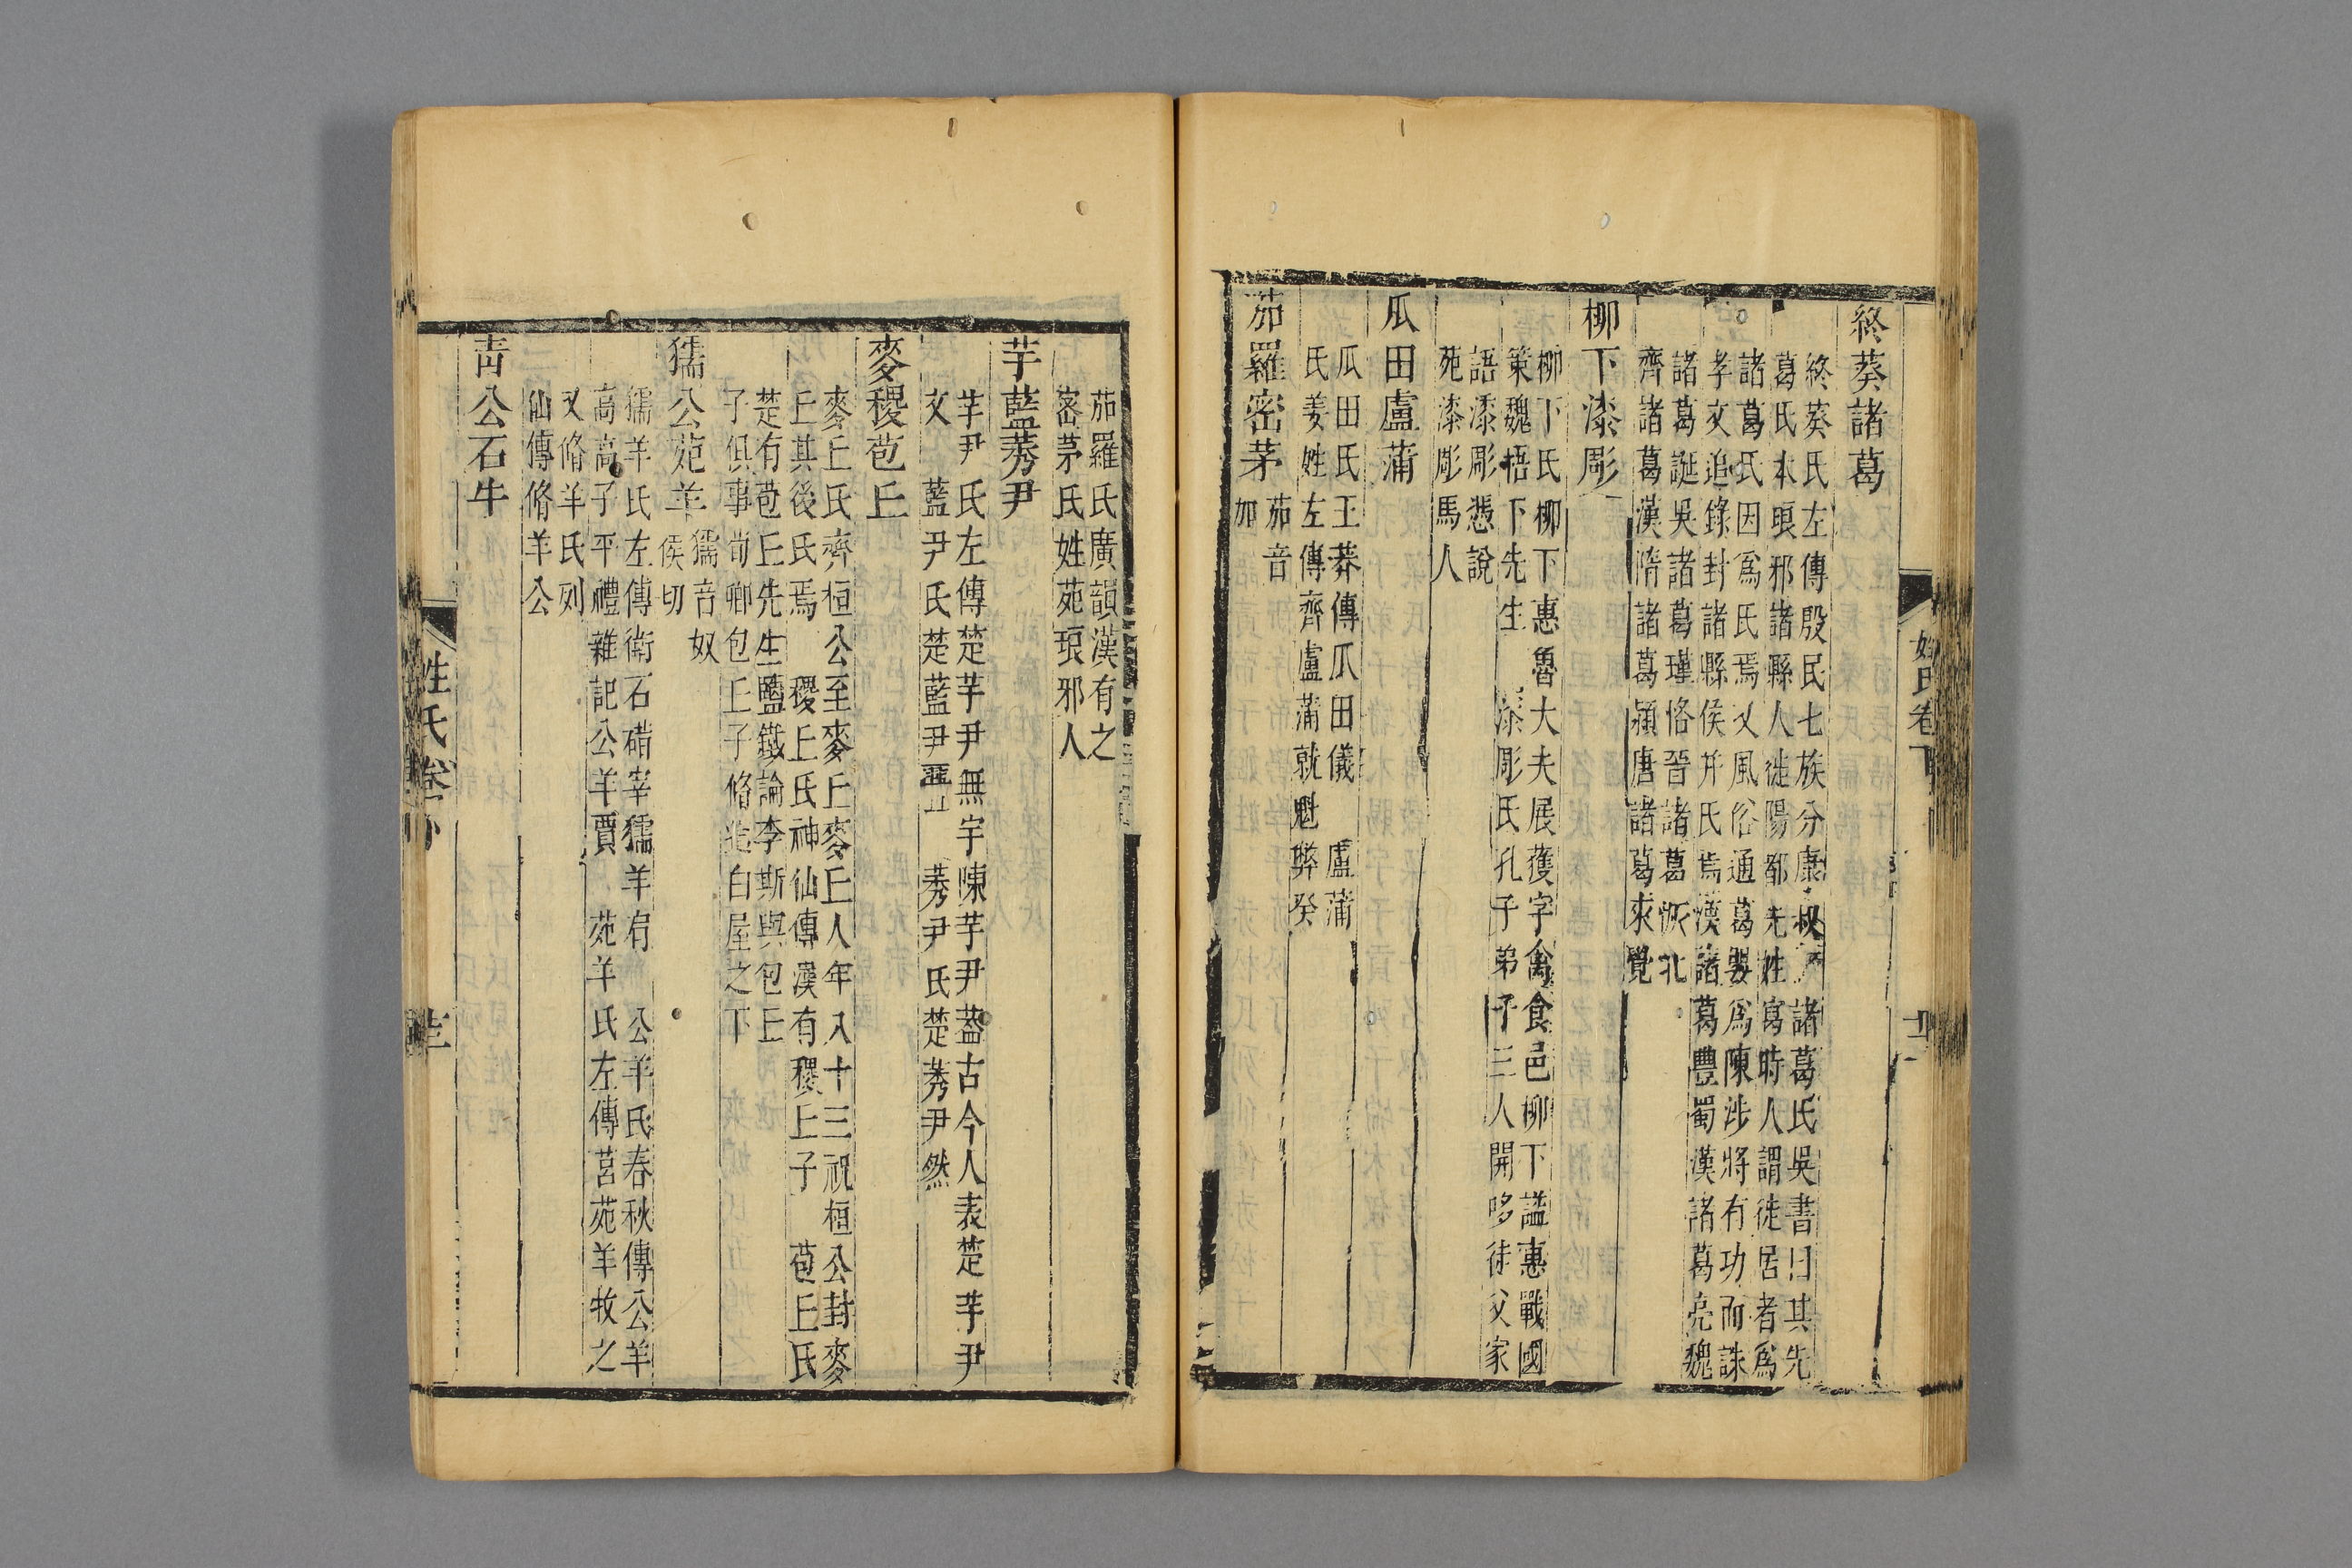 終葵諸葛
終葵氏左傳殷民七族分康叔 諸葛氏吳書曰其先
葛氏本琅邪諸縣人徙陽都先姓寓時人謂徙居者爲
諸葛氏因爲氏焉又風俗通葛嬰爲陳涉將有功而誅
孝文追錄封諸縣侯并氏焉漢諸葛豐蜀漢諸葛亮魏
諸葛誕吳諸葛瑾恪晉諸葛恢北
齊諸葛漢隋諸葛潁唐諸葛求覺
柳下漆彫
柳下氏柳下惠魯大夫展獲字禽食邑柳下謚惠戰國
策魏梧下先生 漆彫氏孔子弟子三人開哆徒父家
語漆彫憑說
苑漆彫馬人
瓜田盧蒲
瓜田氏王莽傳瓜田儀 盧蒲
氏姜姓左傳齊盧蒲就魁嫳癸
茄羅密茅
茄音
加
姓氏卷下
茄羅氏廣韻漢有之
密茅氏姓苑琅邪人
芋藍莠尹
芋尹氏左傳楚芋尹無宇陳芋尹葢古今人表楚芋尹
文 藍尹氏楚藍尹亹 莠尹氏楚莠尹然
麥稷苞丘
麥丘氏齊桓公至麥丘麥丘人年八十三祝桓公封麥
丘其後氏焉 稷丘氏神仙傳漢有稷丘子 苞丘氏
楚有苞丘先生鹽鐵論李斯與包丘
子俱事荀卿包丘子脩道白屋之下
獳公苑羊
獳音奴
侯切
獳羊氏左傳衛石碏宰獳羊肩 公羊氏春秋傳公羊
高高子平禮雜記公羊賈 苑羊氏左傳莒苑羊牧之
又脩羊氏列
仙傳脩羊公
青公石牛
姓氏卷下